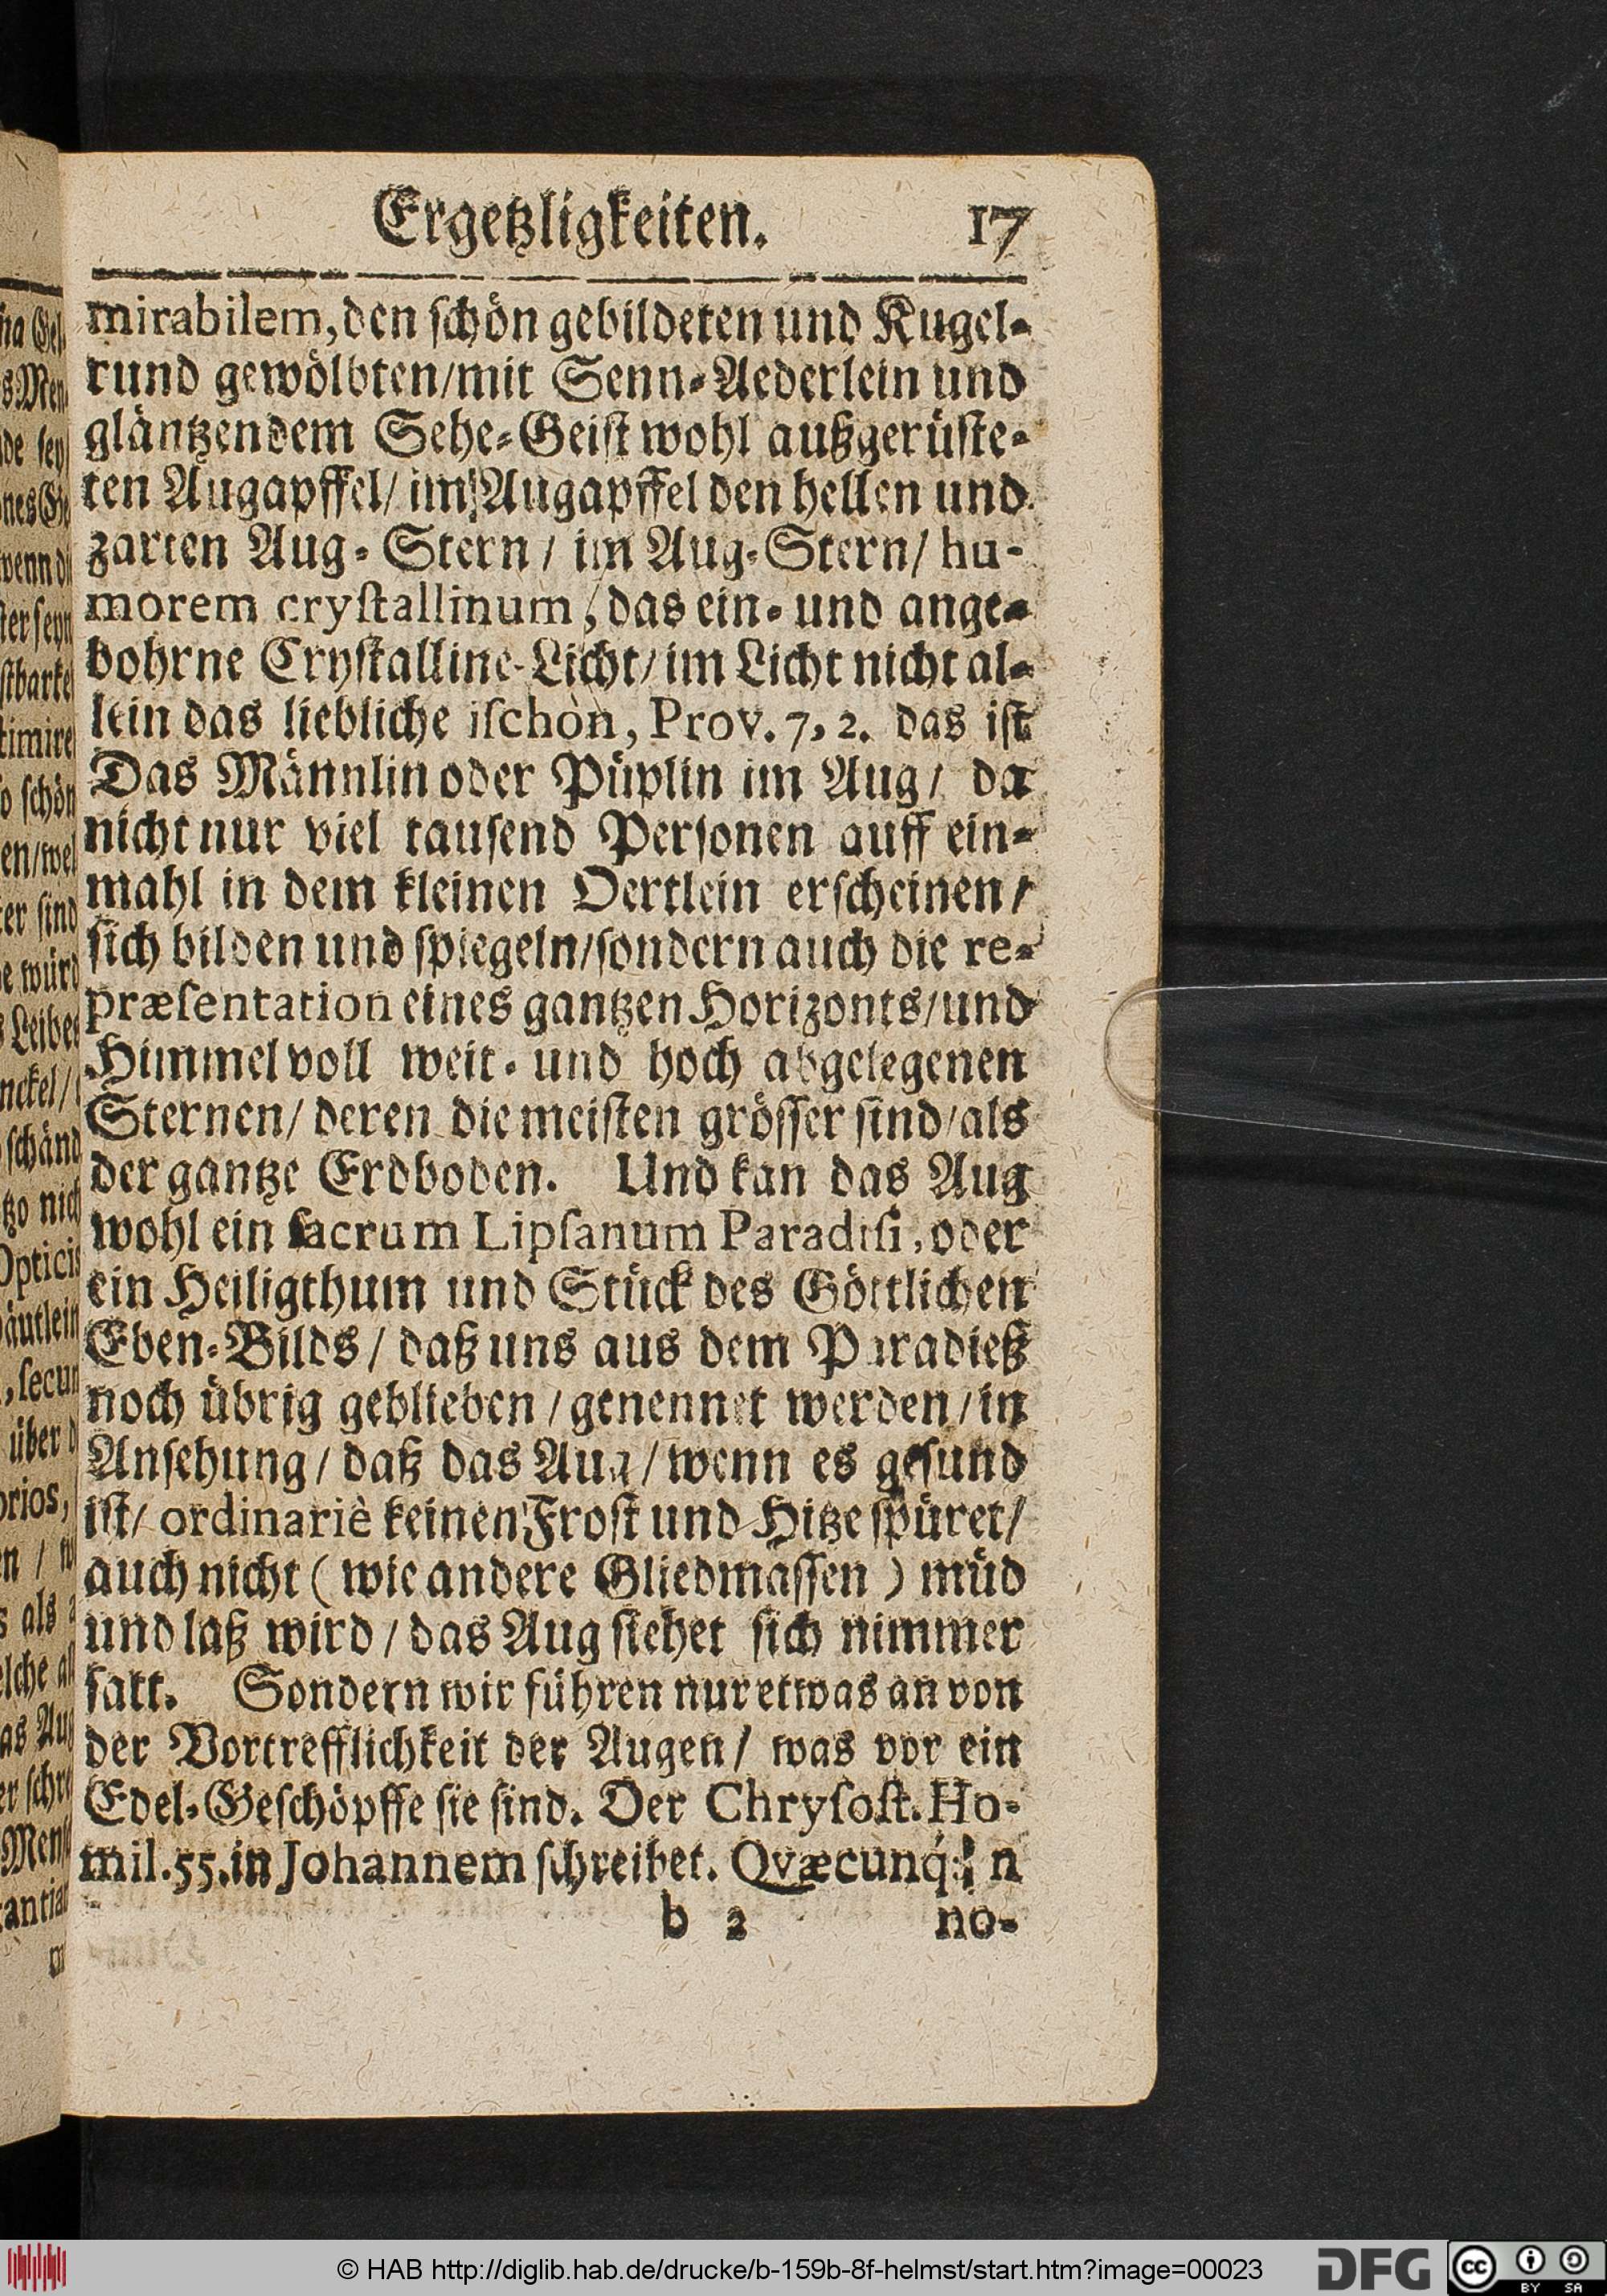 Ergetzligkeiten. 17
mirabilem, den ſchön gebildeten und Kugel-
rund gewölbten/mit Senn-Aederlein und
gläntzendem Sehe-Geiſt wohl außgerüſte-
ten Augapffel/ im Augapffel den hellen und
zarten Aug-Stern/ im Aug-Stern/ hu-
morem cryſtallinum, das ein- und ange-
bohrne Cryſtalline-Licht/ im Licht nicht al-
lein das liebliche iſchòn, Prov. 7, 2. das iſt
Das Männlin oder Püplin im Aug/ da
nicht nur viel tauſend Perſonen auff ein-
mahl in dem kleinen Oertlein erſcheinen/
ſich bilden und ſpiegeln/ſondern auch die re-
præſentation eines gantzen Horizonts/und
Himmel voll weit- und hoch abgelegenen
Sternen/ deren die meiſten gröſſer ſind/als
der gantze Erdboden. Und kan das Aug
wohl ein ſacrum Lipſanum Paradiſi, oder
ein Heiligthum und Stück des Göttlichen
Eben-Bilds/ daß uns aus dem Paradieß
noch übrig geblieben/genennet werden/in
Anſehung/ daß das Aug/wenn es geſund
iſt/ ordinariè keinen Froſt und Hitze ſpüret/
auch nicht (wie andere Gliedmaſſen) müd
und laß wird/das Aug ſiehet ſich nimmer
ſatt. Sondern wir führen nur etwas an von
der Vortrefflichkeit der Augen/ was vor ein
Edel-Geſchöpffe ſie ſind. Der Chryſoſt. Ho-
mil. 55. in Johannem ſchreibet. Qvæcunq́; n
b 2 no-
© HAB http://diglib.hab.de/drucke/b-159b-8f-helmst/start.htm?image=00023
DFG
cc BY SA